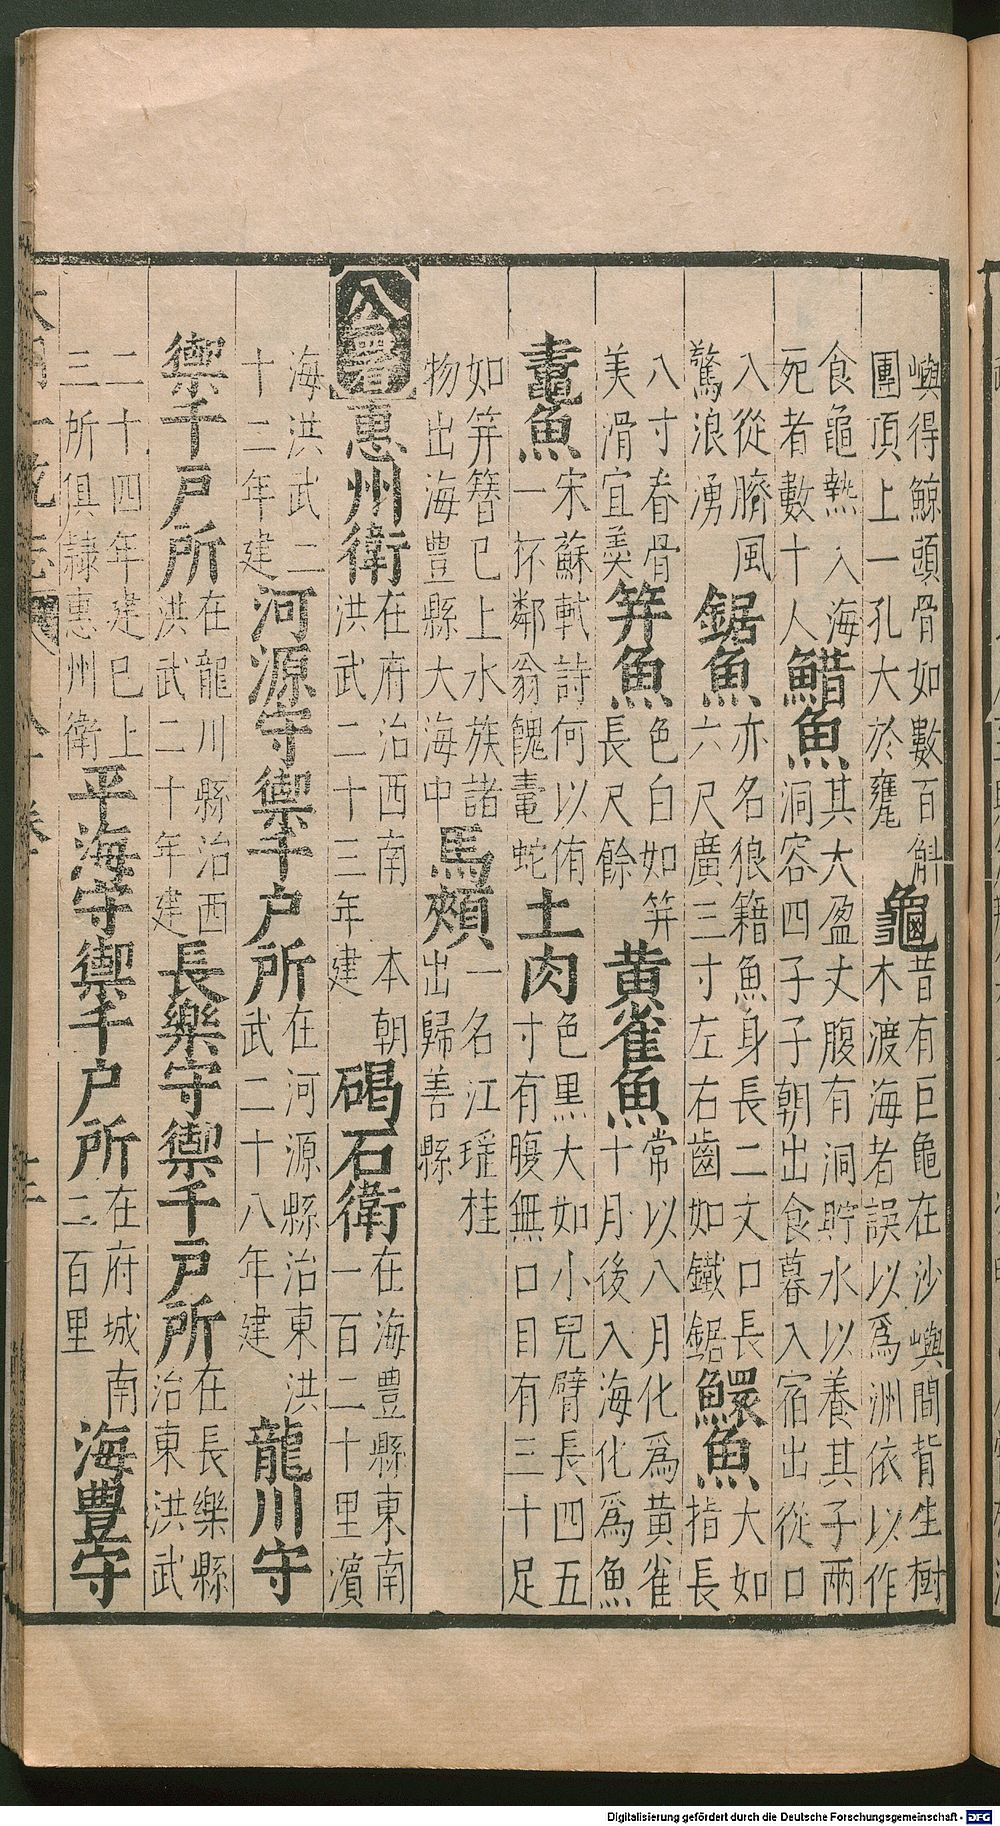 嶼得鯨頭骨如數百斛
團頂上一孔大於甕
龜
昔有巨龜在沙嶼間背生樹
木渡海者誤以爲洲依以作
食龜熱入海
死者數十人
鯌魚
其大盈丈腹有洞貯水以養其子兩
洞容四子子朝出食暮入宿出從口
入從臍風
驚浪湧
鋸魚
亦名狼籍魚身長二丈口長
六尺廣三寸左右齒如鐵鋸
鰥魚
大如
指長
八寸眷骨
美滑宜羹
笄魚
色白如笄
長尺餘
黄雀魚
常以八月化爲黄雀
十月後入海化爲魚
鼃魚
宋蘇軾詩何以侑
一杯鄰翁餽鼃蛇
土肉
色黒大如小兒臂長四五
寸有腹無口目有三十足
如笄簪已上水族諸
物出海豊縣大海中
馬頰
一名江瑶桂
出歸善縣
公署
惠州衛
在府治西南 本朝
洪武二十三年建
碣石衛
在海豊縣東南
一百二十里濱
海洪武二
十二年建
河源守禦千户所
在河源縣治東洪
武二十八年建
龍川守
禦千戸所
在龍川縣治西
洪武二十年建
長樂守禦千戸所
在長樂縣
治東洪武
二十四年建已上
三所俱隷惠州衛
平海守禦千户所
在府城南
二百里
海豊守
Digitalisierung gefördert durch die Deutsche Forschungsgemeinschaft - DFG